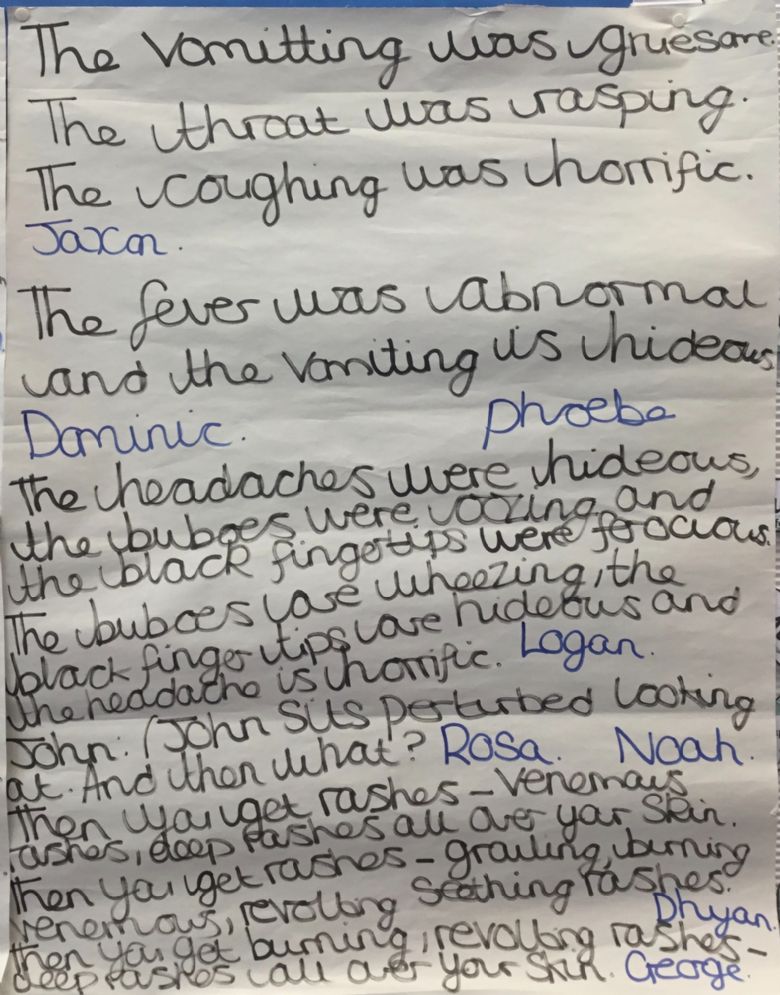 The vomitting was gruesome.
The throat was rasping.
The coughing was horrific.
Jaxon.
The fever was abnormal
and the vomiting is hideous
Dominic. Phoebe
The headaches were hideous,
the buboes were oozing and
the black fingertips were ferocious.
The buboes are wheezing, the
black finger tips are hideous and
the headache is horrific. Logan.
John: (John sits perturbed looking
at. And then what? Rosa. Noah.
Then you get rashes - venemous
rashes, deep rashes all over your skin.
Then you get rashes - grailing, burning
venemous, revolting seething rashes.
Dhyan.
then you get burning, revolting rashes -
deep rashes all over your skin. George.